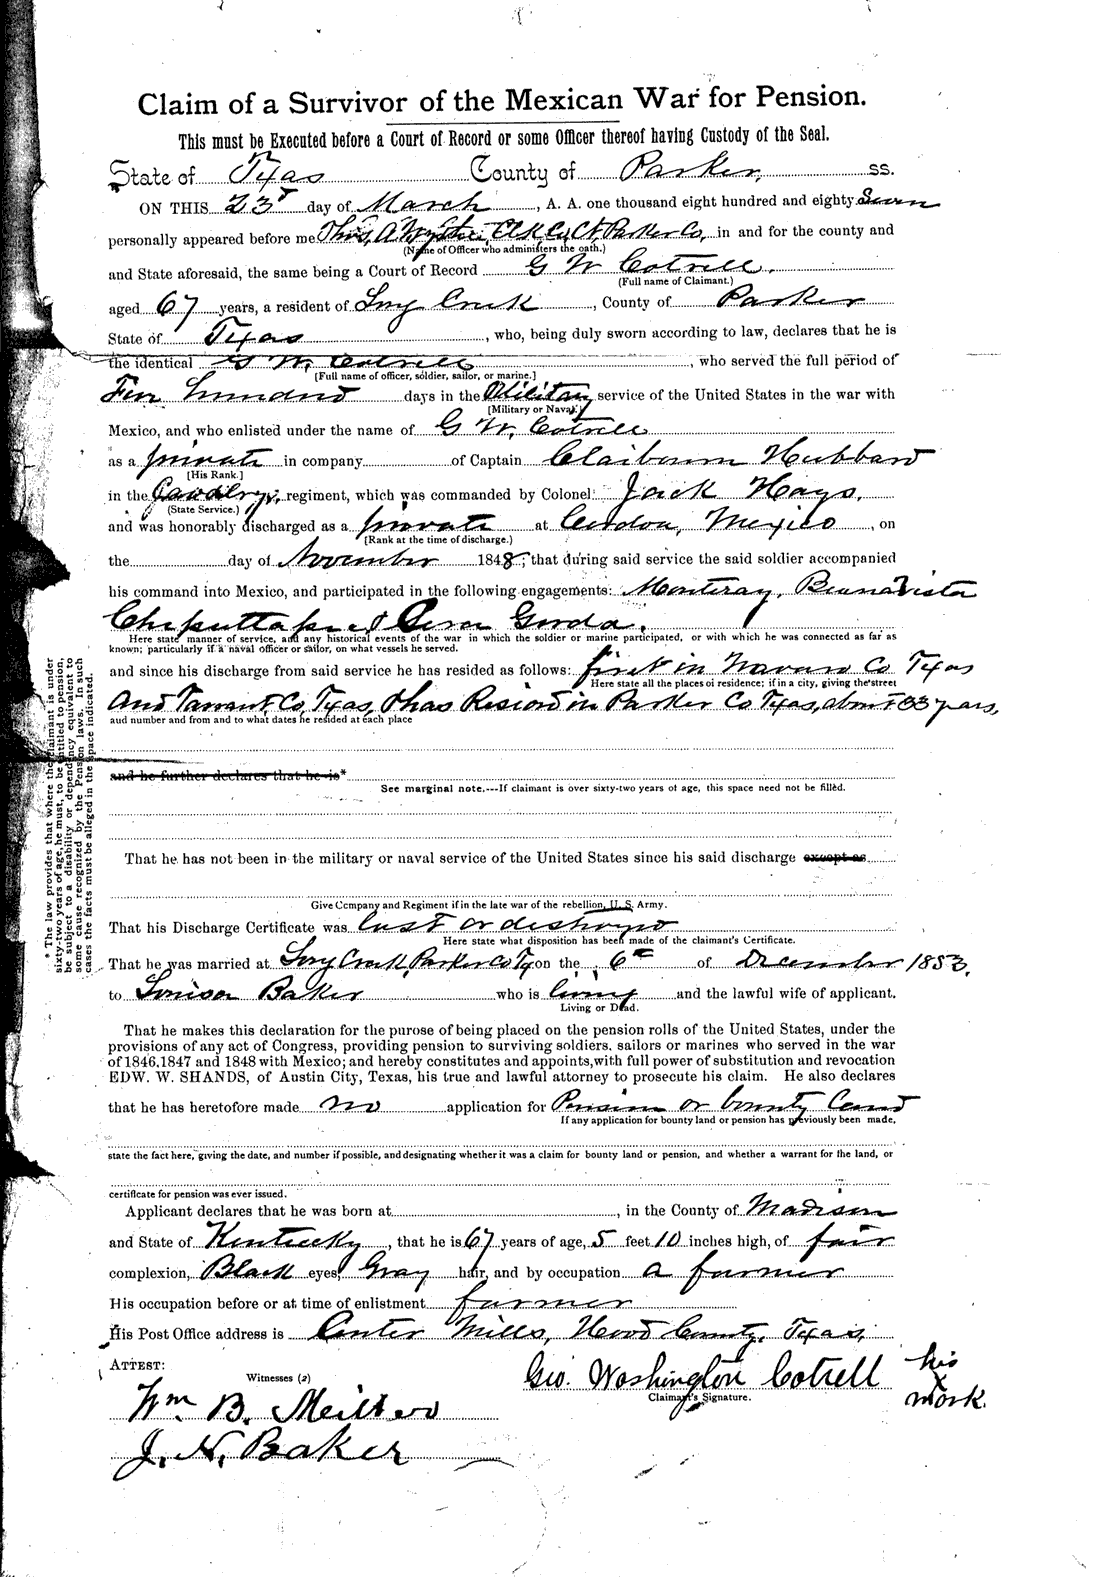 Claim of a Survivor of the Mexican War for Pension.
This must be Executed before a Court of Record or some Officer thereof having Custody of the Seal.
State of Texas County of Parker, ss.
ON THIS 23d day of March, A. A. one thousand eight hundred and eighty Seven
personally appeared before me Thos. A. Clk Co Ct, Parker Co, in and for the county and
(Name of Officer who administers the oath.)
and State aforesaid, the same being a Court of Record G W Cotrell.
(Full name of Claimant.)
aged 67 years, a resident of Creek, County of Parker
State of Texas, who, being duly sworn according to law, declares that he is
the identical G W. Cotrell, who served the full period of
[Full name of officer, soldier, sailor, or marine.]
days in the Military service of the United States in the war with
[Military or Naval.]
Mexico, and who enlisted under the name of G W. Cotrell
as a private in company of Captain Claibourn Hubbard
[His Rank.]
in the Cavalry, regiment, which was commanded by Colonel: Jack Hays,
(State Service.)
and was honorably discharged as a private at Mexico, on
[Rank at the time of discharge.]
the day of November 1848; that during said service the said soldier accompanied
his command into Mexico, and participated in the following engagements: Monteray, Buena Vista
Gorda.
Here state manner of service, and any historical events of the war in which the soldier or marine participated, or with which he was connected as far as
known; particularly if a naval officer or sailor, on what vessels he served.
and since his discharge from said service he has resided as follows: first in Navaro Co Texas
Here state all the places of residence; if in a city, giving the street
And Tarrant Co, Texas, & has Resided in Parker Co Texas, about 33 years,
aud number and from and to what dates he resided at each place
and he further declares that he is*
See marginal note.---If claimant is over sixty-two years of age, this space need not be filled.
That he has not been in the military or naval service of the United States since his said discharge except as
Give Company and Regiment if in the late war of the rebellion, U. S. Army.
That his Discharge Certificate was lost or destroyd
Here state what disposition has been made of the claimant's Certificate.
That he was married at Creek, Parker Co Tx on the 6th of December 1853,
to Louisa Baker who is living and the lawful wife of applicant.
Living or Dead.
That he makes this declaration for the purose of being placed on the pension rolls of the United States, under the
provisions of any act of Congress, providing pension to surviving soldiers, sailors or marines who served in the war
of 1846,1847 and 1848 with Mexico; and hereby constitutes and appoints,with full power of substitution and revocation
EDW. W. SHANDS, of Austin City, Texas, his true and lawful attorney to prosecute his claim. He also declares
that he has heretofore made no application for Pension or bounty Land
If any application for bounty land or pension has previously been made,
state the fact here, giving the date, and number if possible, and designating whether it was a claim for bounty land or pension, and whether a warrant for the land, or
certificate for pension was ever issued.
Applicant declares that he was born at, in the County of Madison
and State of Kentucky, that he is 67 years of age, 5 feet 10 inches high, of fair
complexion, Black eyes, Gray hair, and by occupation a farmer
His occupation before or at time of enlistment farmer
His Post Office address is Center Mills, Hood County, Texas,
ATTEST:
Witnesses (2)
Geo. Washington Cotrell his x mark.
Claimant's Signature.
Wm. B.
J. N. Baker
* The law provides that where the claimant is under
sixty-two years of age, he must, to be entitled to pension
be subject to a disability or dependency equivalent to
some cause recognized by the Pension laws. In such
cases the facts must be alleged in the space indicated.